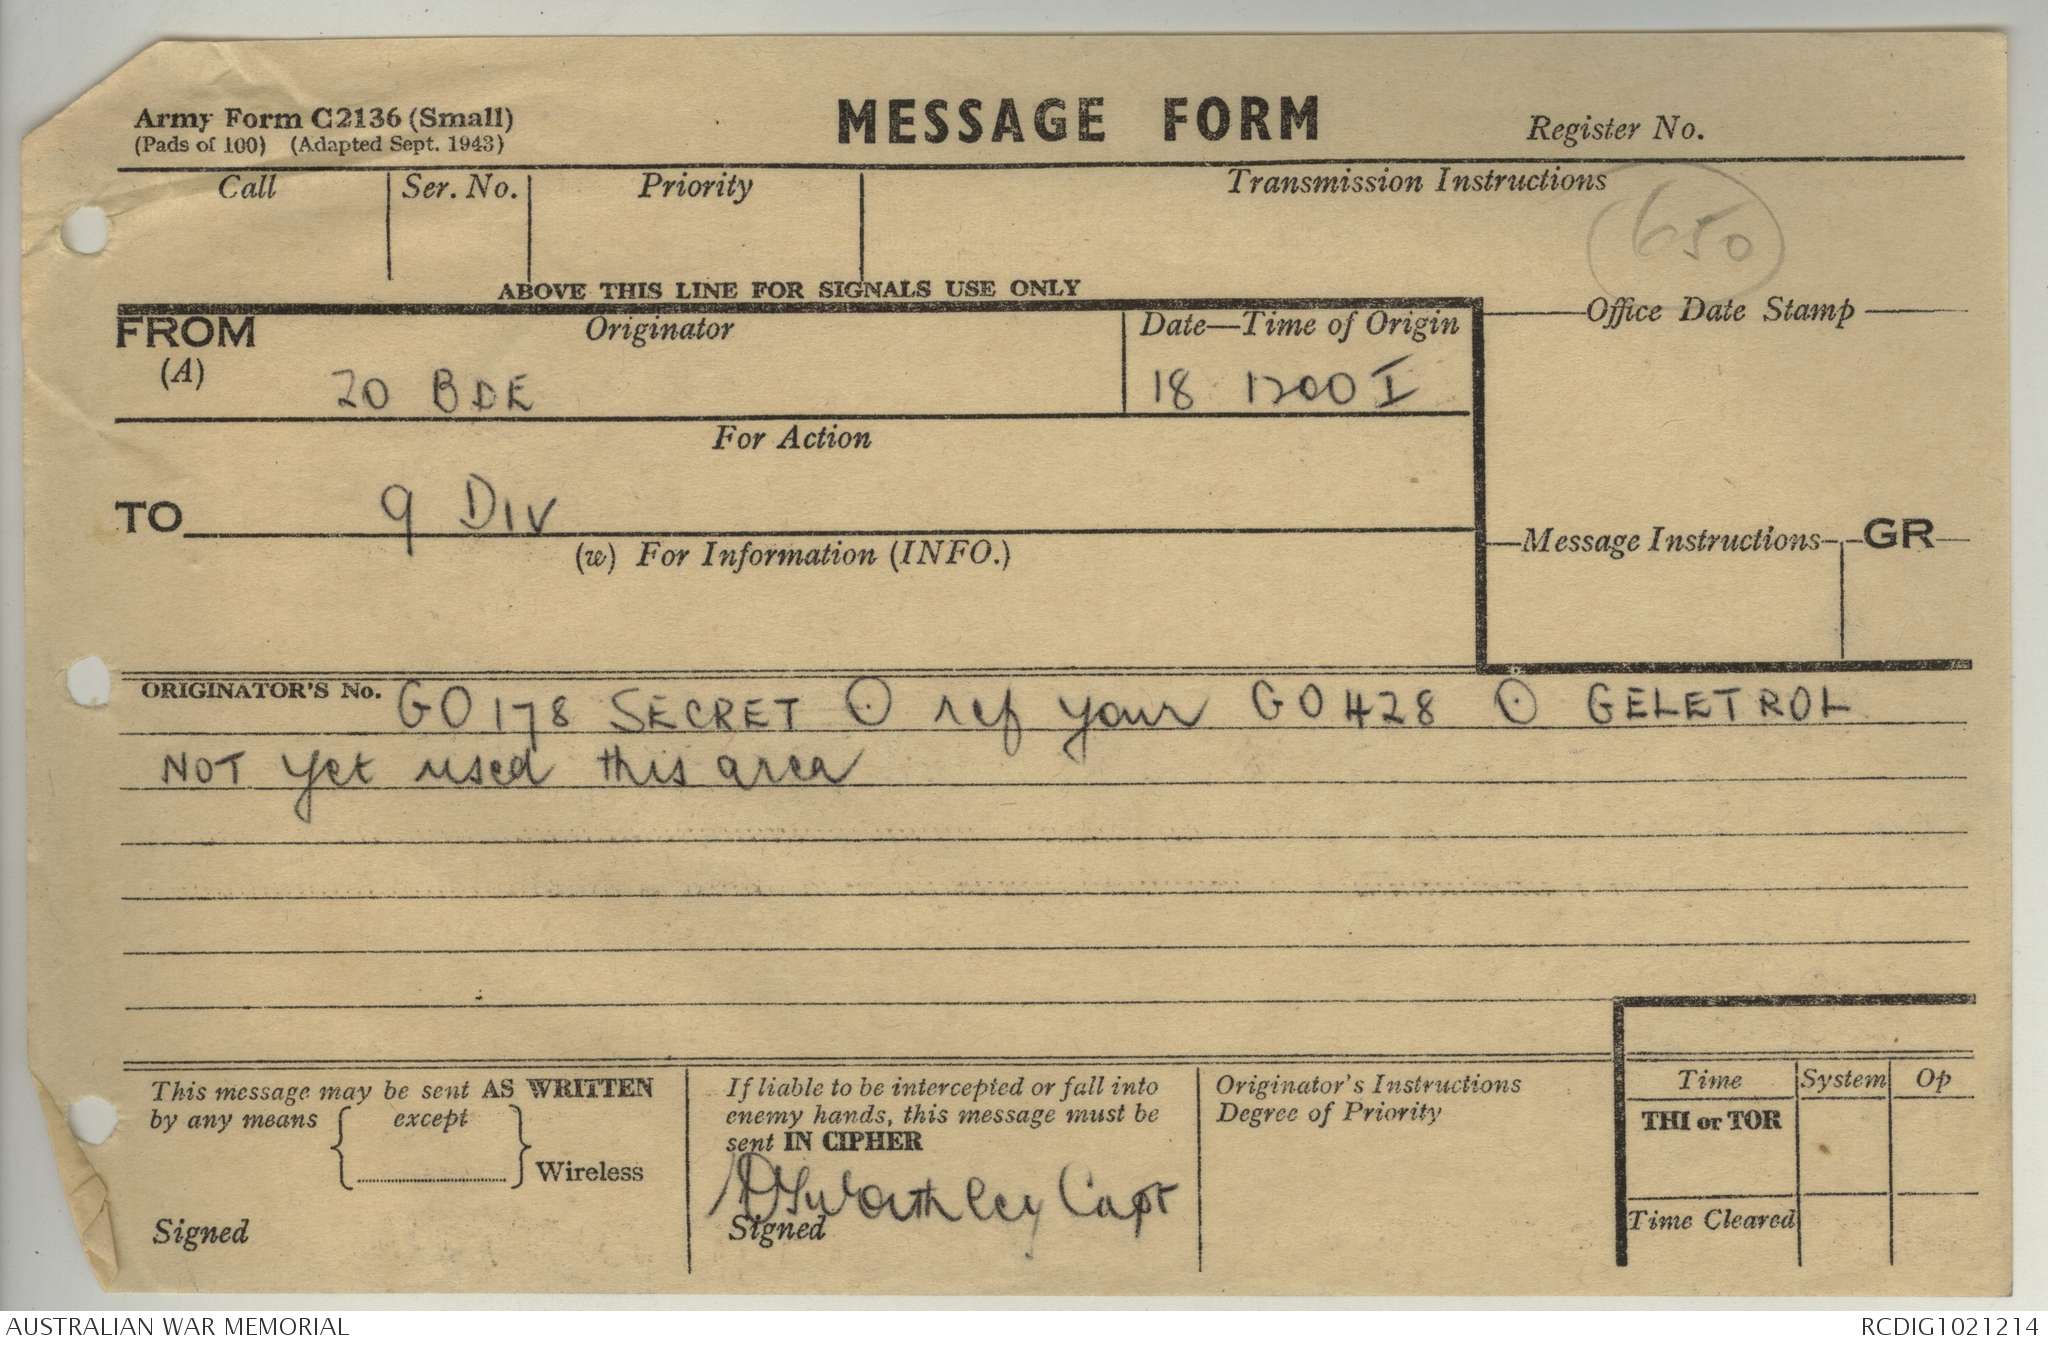 Army Form C2136 (Small)
(Pads of 100) (Adapted Sept. 1943)
MESSAGE FORM
Register No.
Call
Ser. No.
Priority
Transmission Instructions
650
ABOVE THIS LINE FOR SIGNALS USE ONLY
FROM
(A)
Originator
Date—Time of Origin
Office Date Stamp
20 BDE
18 1200 I
For Action
TO
9 DIV
(w) For Information (INFO.)
Message Instructions
GR
ORIGINATOR'S No.
GO178 SECRET ⊙ ref your GO428 ⊙ GELETROL
NOT yet used this area
This message may be sent AS WRITTEN
by any means { except
} Wireless
Signed
If liable to be intercepted or fall into
enemy hands, this message must be
sent IN CIPHER
Worthley Capt
Signed
Originator's Instructions
Degree of Priority
Time
System
Op
THI or TOR
Time Cleared
AUSTRALIAN WAR MEMORIAL
RCDIG1021214